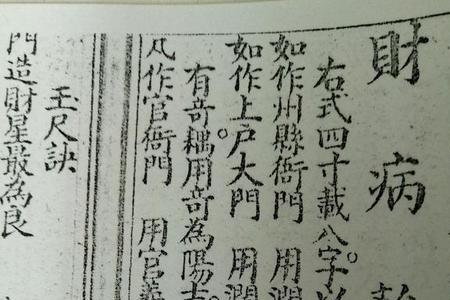 財病
右式四寸載八字。以
如作州縣衙門 用濶
如作上戸大門 用濶
有奇耦。用奇為陽
凡作官衙門 用官義
玉尺訣
門造財星最為良